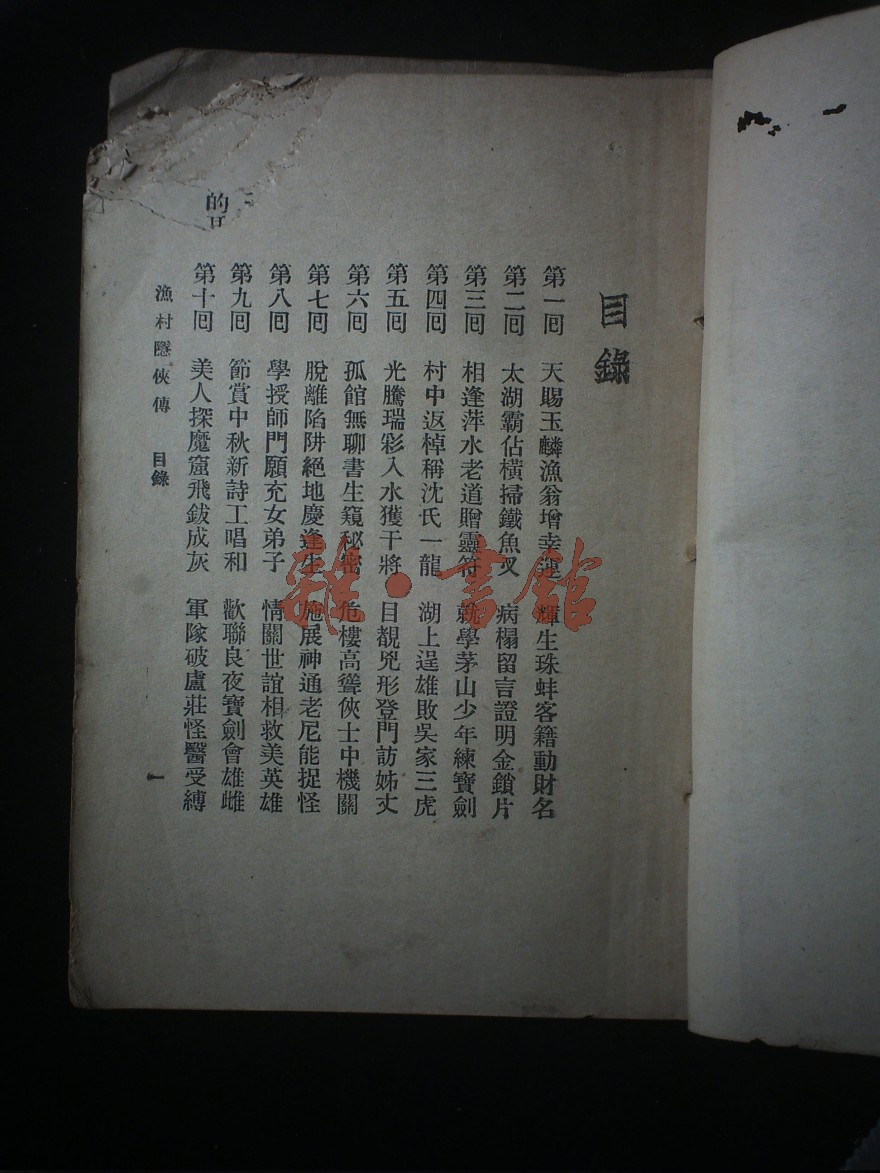 目錄
第一囘 天賜玉麟漁翁增幸運 輝生珠蚌客籍動財名
第二囘 太湖霸佔橫掃鐵魚叉 病榻留言證明金鎖片
第三囘 相逢萍水老道贈靈符 就學茅山少年練寶劍
第四囘 村中返棹稱沈氏一龍 湖上逞雄敗吳家三虎
第五囘 光騰瑞彩入水獲干將 目覩兇形登門訪姊丈
第六囘 孤館無聊書生窺秘密 危樓高聳俠士中機關
第七囘 脫離陷阱絕地慶逢生 施展神通老尼能捉怪
第八囘 學授師門願充女弟子 情關世誼相救美英雄
第九囘 節賞中秋新詩工唱和 歡聯良夜寶劍會雄雌
第十囘 美人探魔窟飛鈸成灰 軍隊破盧莊怪醫受縛
漁村隱俠傳 目錄 一
的
雜·書館